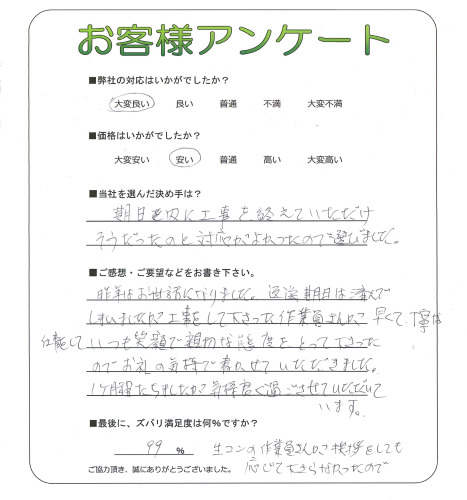 お客様アンケート
■弊社の対応はいかがでしたか？
大変良い 良い 普通 不満 大変不満
■価格はいかがでしたか？
大変安い 安い 普通 高い 大変高い
■当社を選んだ決め手は？
期日迄内に工事を終えていただけ
そうだったのと対応がよかったので選びました。
■ご感想・ご要望などをお書き下さい。
昨年はお世話になりました。返送期日は済んで
しまいましたが工事をして下さった作業員さんが早くて丁寧な
仕事をして いつも笑顔で親切な態度をとって下さった
のでお礼の気持で書かせていただきました。
1ヶ月程たちましたが気持良く過ごさせていただいて
います。
■最後に、ズバリ満足度は何％ですか？
99 % 生コンの作業員さんが挨拶をしても
ご協力頂き、誠にありがとうございました。 応じて下さらなかったので